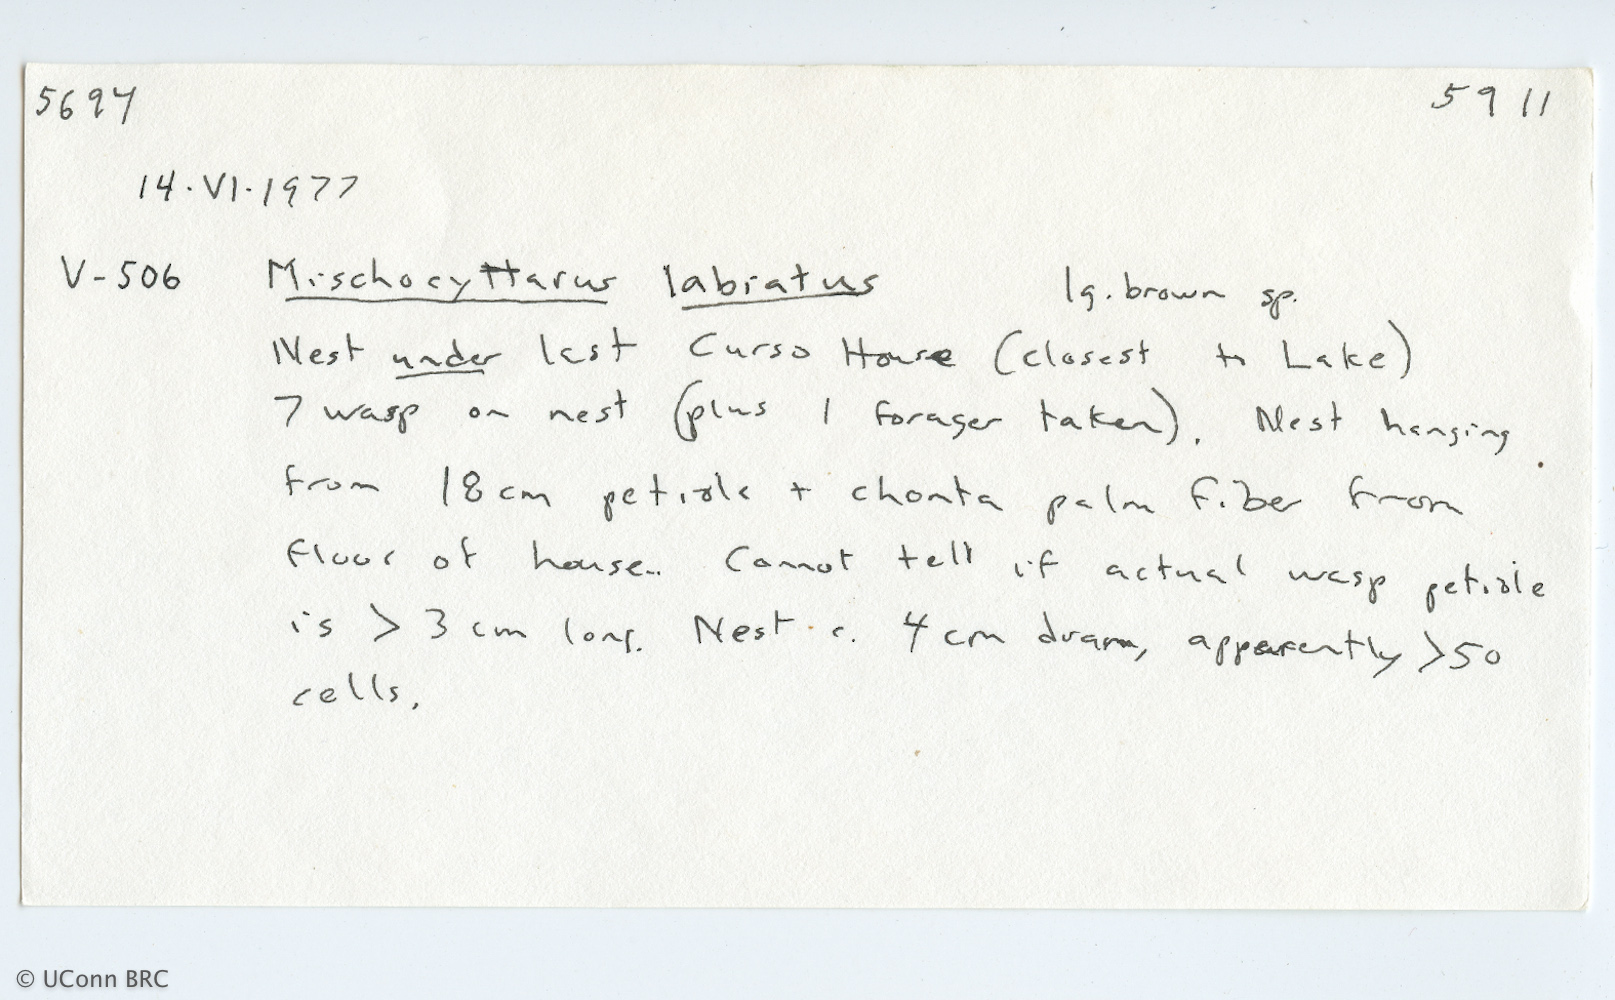 5694 5911
14.VI.1977
V-506 Mischocyttarus labiatus lg. brown sp.
Nest under last Curso House (closest to Lake)
7 wasp on nest (plus 1 forager taken). Nest hanging
from 18cm petiole + chonta palm fiber from
floor of house. Cannot tell if actual wasp petiole
is > 3 cm long. Nest c. 4 cm diam, apparently >50
cells.
© UConn BRC